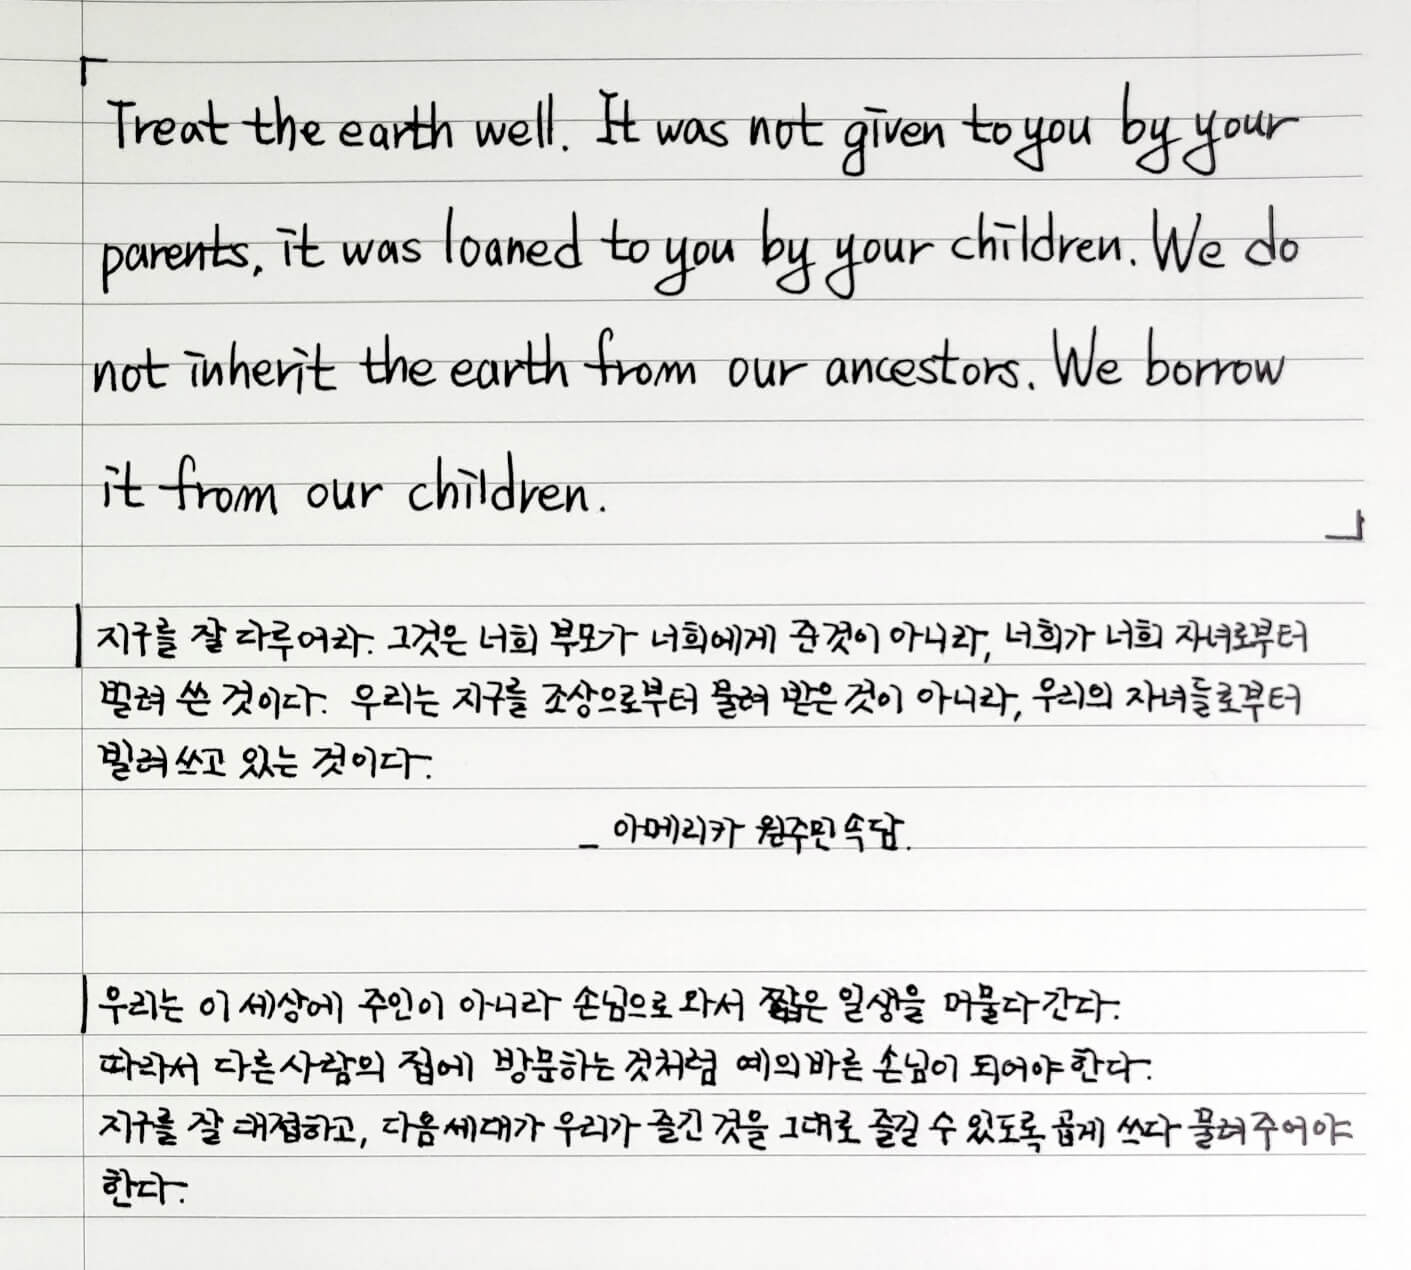 「Treat the earth well. It was not given to you by your
parents, it was loaned to you by your children. We do
not inherit the earth from our ancestors. We borrow
it from our children.」
지구를 잘 다루어라. 그것은 너희 부모가 너희에게 준것이 아니라, 너희가 너희 자녀로부터
빌려 쓴 것이다. 우리는 지구를 조상으로부터 물려 받은 것이 아니라, 우리의 자녀들로부터
빌려쓰고 있는 것이다.
_ 아메리카 원주민 속담.
우리는 이 세상에 주인이 아니라 손님으로 와서 짧은 일생을 머물다 간다.
따라서 다른 사람의 집에 방문하는 것처럼 예의바른 손님이 되어야 한다.
지구를 잘 대접하고, 다음세대가 우리가 즐긴 것을 그대로 즐길 수 있도록 곱게 쓰다 물려주어야
한다.